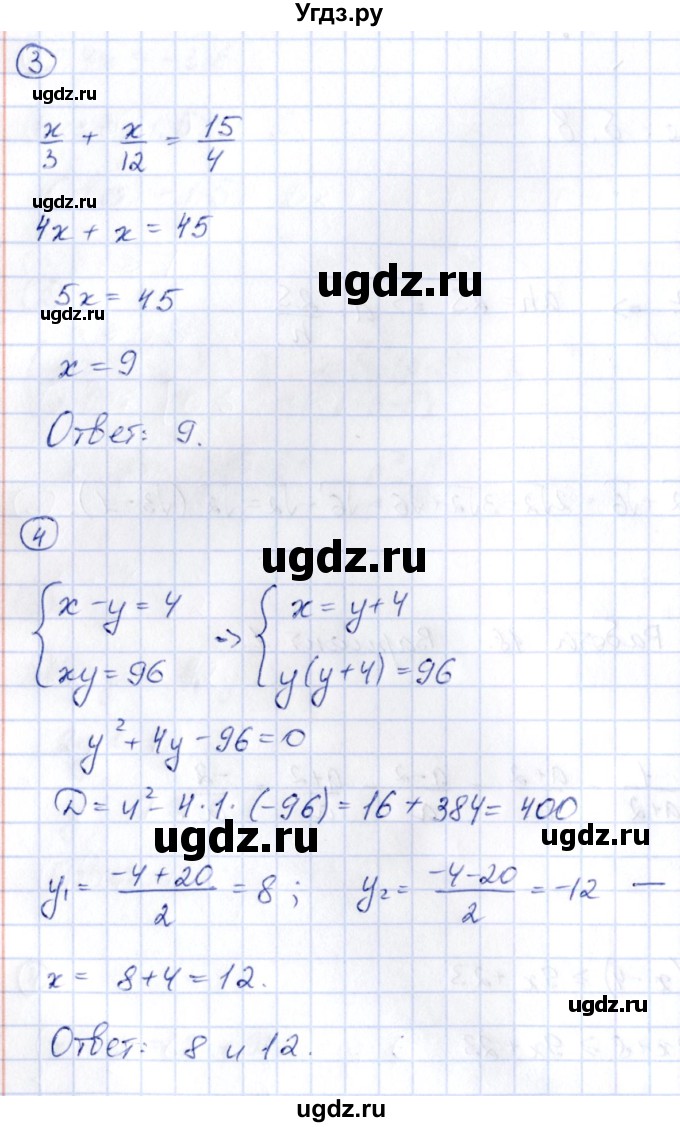 Угдз.ру
3
ugdz.ru
x/3 + x/12 = 15/4
ugdz.ru
4x + x = 45
ugdz.ru
5x = 45
ugdz.ru
x = 9
Ответ: 9.
4
ugdz.ru
{ x - y = 4 => { x = y + 4
xy = 96 y(y+4) = 96
y² + 4y - 96 = 0
D = 4² - 4·1·(-96) = 16 + 384 = 400
ugdz.ru
ugdz.ru
y₁ = (-4+20)/2 = 8; y₂ = (-4-20)/2 = -12 —
x = 8+4 = 12.
ugdz.ru
Ответ: 8 и 12.
ugdz.ru